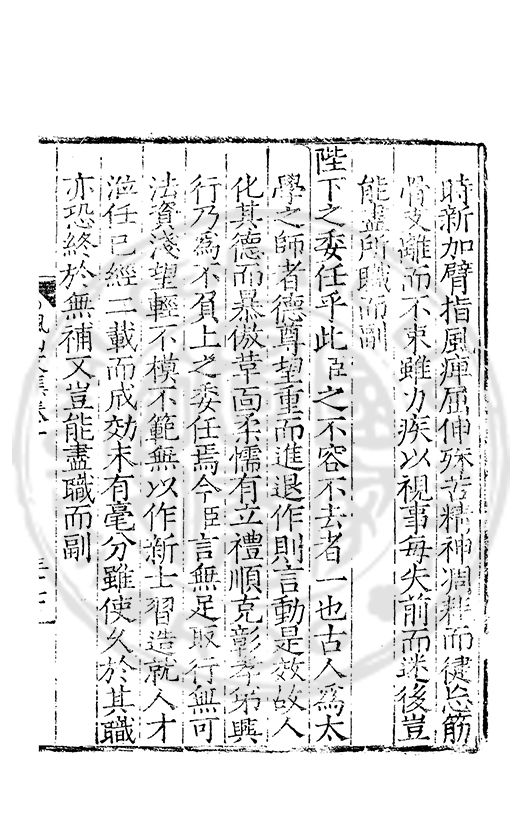 時新加臂指風痺屈伸殊苦精神凋耗而健忘筋
骨支離而不束雖力疾以視事每失前而迷後豈
能盡所職而副
陛下之委任乎此臣之不容不去者一也古人為太
學之師者德尊望重而進退作則言動是效故人
化其德而暴傲革面柔懦有立禮順克彰孝弟興
行乃為不負上之委任焉今臣言無足取行無可
法資淺望輕不模不範無以作新士習造就人才
涖任已經二載而成効未有毫分雖使久於其職
亦恐終於無補又豈能盡職而副